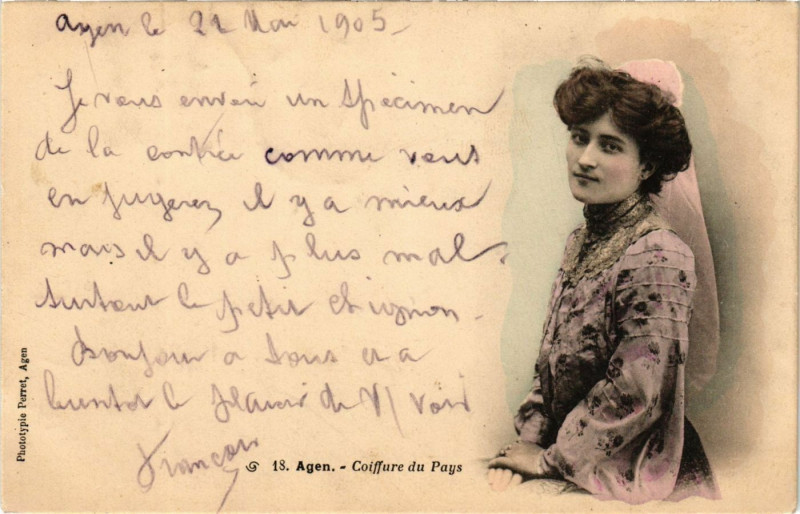 Agen le 22 Mai 1905
Je vous envoi un spécimen
de la contrée comme vous
en jugerez il y a mieux
mais il y a plus mal.
surtout le petit chignon.
Bonjour a tous et a
bientot le plaisir de V/ voir
François
18. Agen. - Coiffure du Pays
Phototypie Perret, Agen